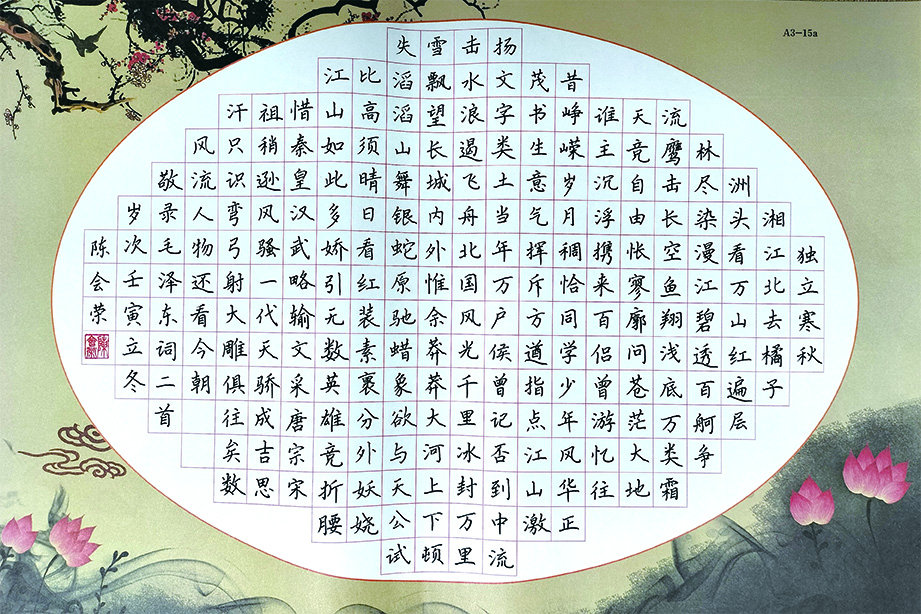 A3-15a
独立寒秋
湘江北去橘子
洲头看万山红遍层
林尽染漫江碧透百舸争
流鹰击长空鱼翔浅底万类霜
天竞自由怅寥廓问苍茫大地
谁主沉浮携来百侣曾游忆往
昔峥嵘岁月稠恰同学少年风华正
茂书生意气挥斥方遒指点江山激
扬文字类土当年万户侯曾记否到中流
击水浪遏飞舟北国风光千里冰封万里
雪飘望长城内外惟余莽莽大河上下顿
失滔滔山舞银蛇原驰蜡象欲与天公试
比高须晴日看红装素裹分外妖娆
江山如此多娇引无数英雄竞折腰
惜秦皇汉武略输文采唐宗宋
祖稍逊风骚一代天骄成吉思
汗只识弯弓射大雕俱往矣数
风流人物还看今朝
敬录毛泽东词二首
岁次壬寅立冬
陈会荣